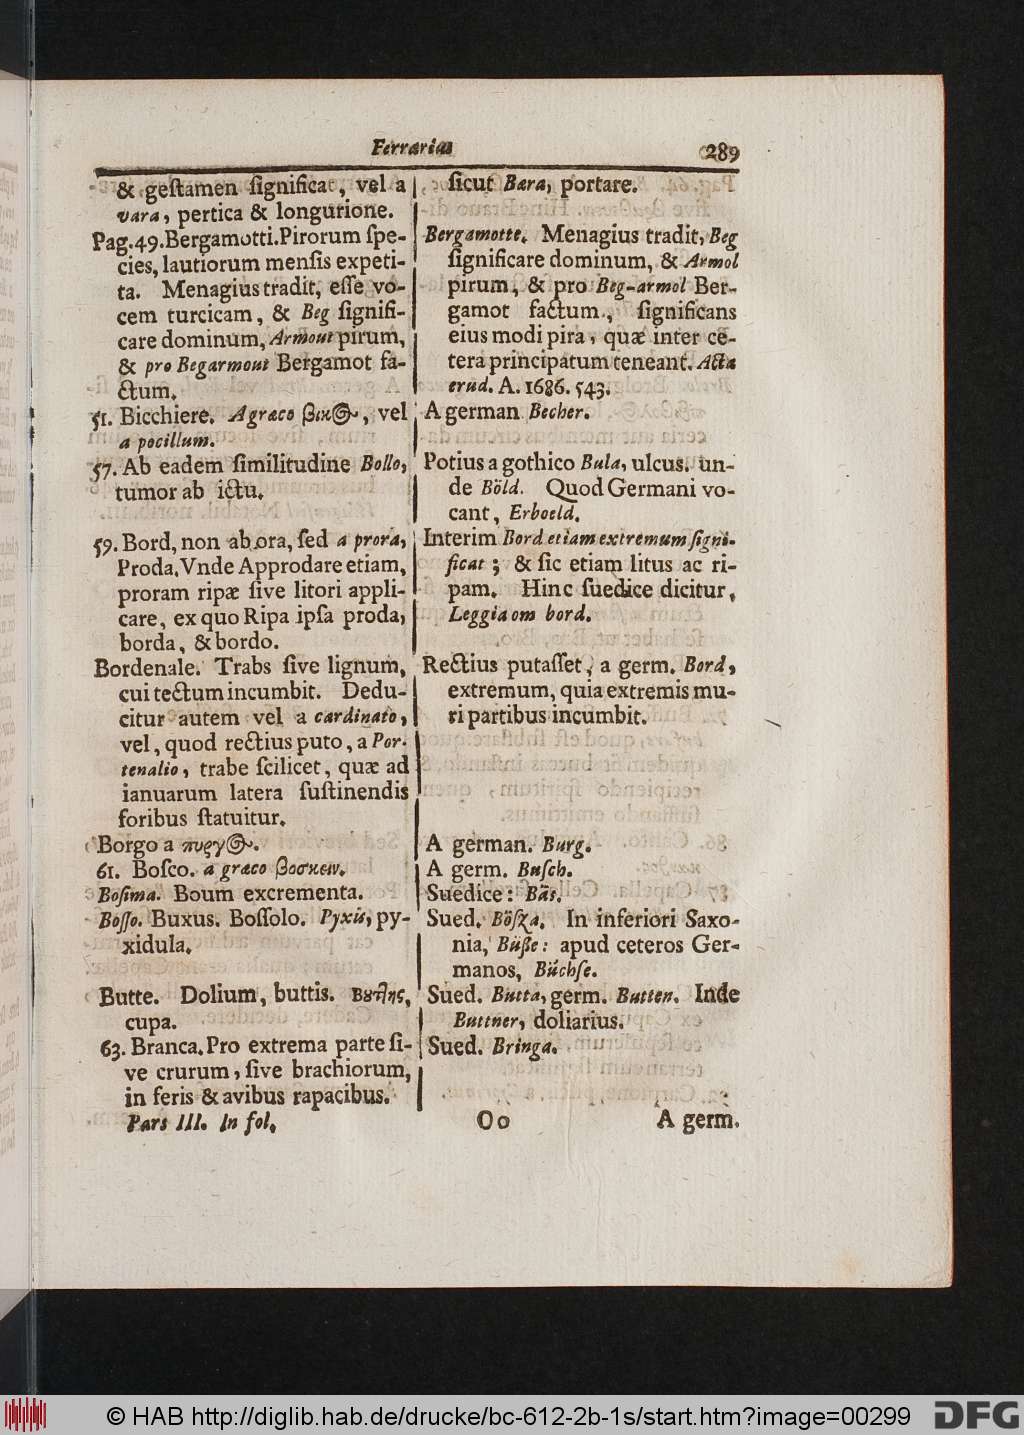 Ferrarius
289
& gestamen significat, vel a
vara, pertica & longurione.
Pag.49.Bergamotti.Pirorum spe-
cies, lautiorum mensis expeti-
ta. Menagius tradit, esse vo-
cem turcicam, & Beg signifi-
care dominum, Armout pirum,
& pro Begarmout Bergamot fa-
ctum.
51. Bicchiere. A græco βικ@, vel
a pocillum.
57. Ab eadem similitudine Bollo,
tumor ab ictu.
59. Bord, non ab ora, sed a prora,
Proda. Vnde Approdare etiam,
proram ripæ sive litori appli-
care, ex quo Ripa ipsa proda,
borda, & bordo.
Bordenale. Trabs sive lignum,
cui tectum incumbit. Dedu-
citur autem vel a cardinato,
vel, quod rectius puto, a Por-
tenalio, trabe scilicet, quæ ad
ianuarum latera sustinendis
foribus statuitur.
Borgo a πυργ@.
61. Bosco. a græco βοσκειν.
Bosima. Boum excrementa.
Bosso. Buxus. Bossolo. Pyxis, py-
xidula.
Butte. Dolium, buttis. Βούτλης,
cupa.
63. Branca. Pro extrema parte si-
ve crurum, sive brachiorum,
in feris & avibus rapacibus.
sicut Bara, portare.
Bergamotte. Menagius tradit, Beg
significare dominum, & Armol
pirum, & pro Beg-armol Ber-
gamot factum, significans
eius modi pira, quæ inter ce-
tera principatum teneant. Acta
erud. A. 1686. 543.
A german Becher.
Potius a gothico Bula, ulcus. un-
de Böld. Quod Germani vo-
cant, Erboeld.
Interim Bord etiam extremum signi-
ficat; & sic etiam litus ac ri-
pam. Hinc suedice dicitur,
Leggia om bord.
Rectius putasset, a germ. Bord,
extremum, quia extremis mu-
ri partibus incumbit.
A german. Burg.
A germ. Busch.
Suedice: Bås.
Sued. Bösza. In inferiori Saxo-
nia, Büße: apud ceteros Ger-
manos, Büchse.
Sued. Butta, germ. Butten. Inde
Buttner, doliarius.
Sued. Bringa.
Pars III. In fol.
Oo
A germ.
© HAB http://diglib.hab.de/drucke/bc-612-2b-1s/start.htm?image=00299
DFG